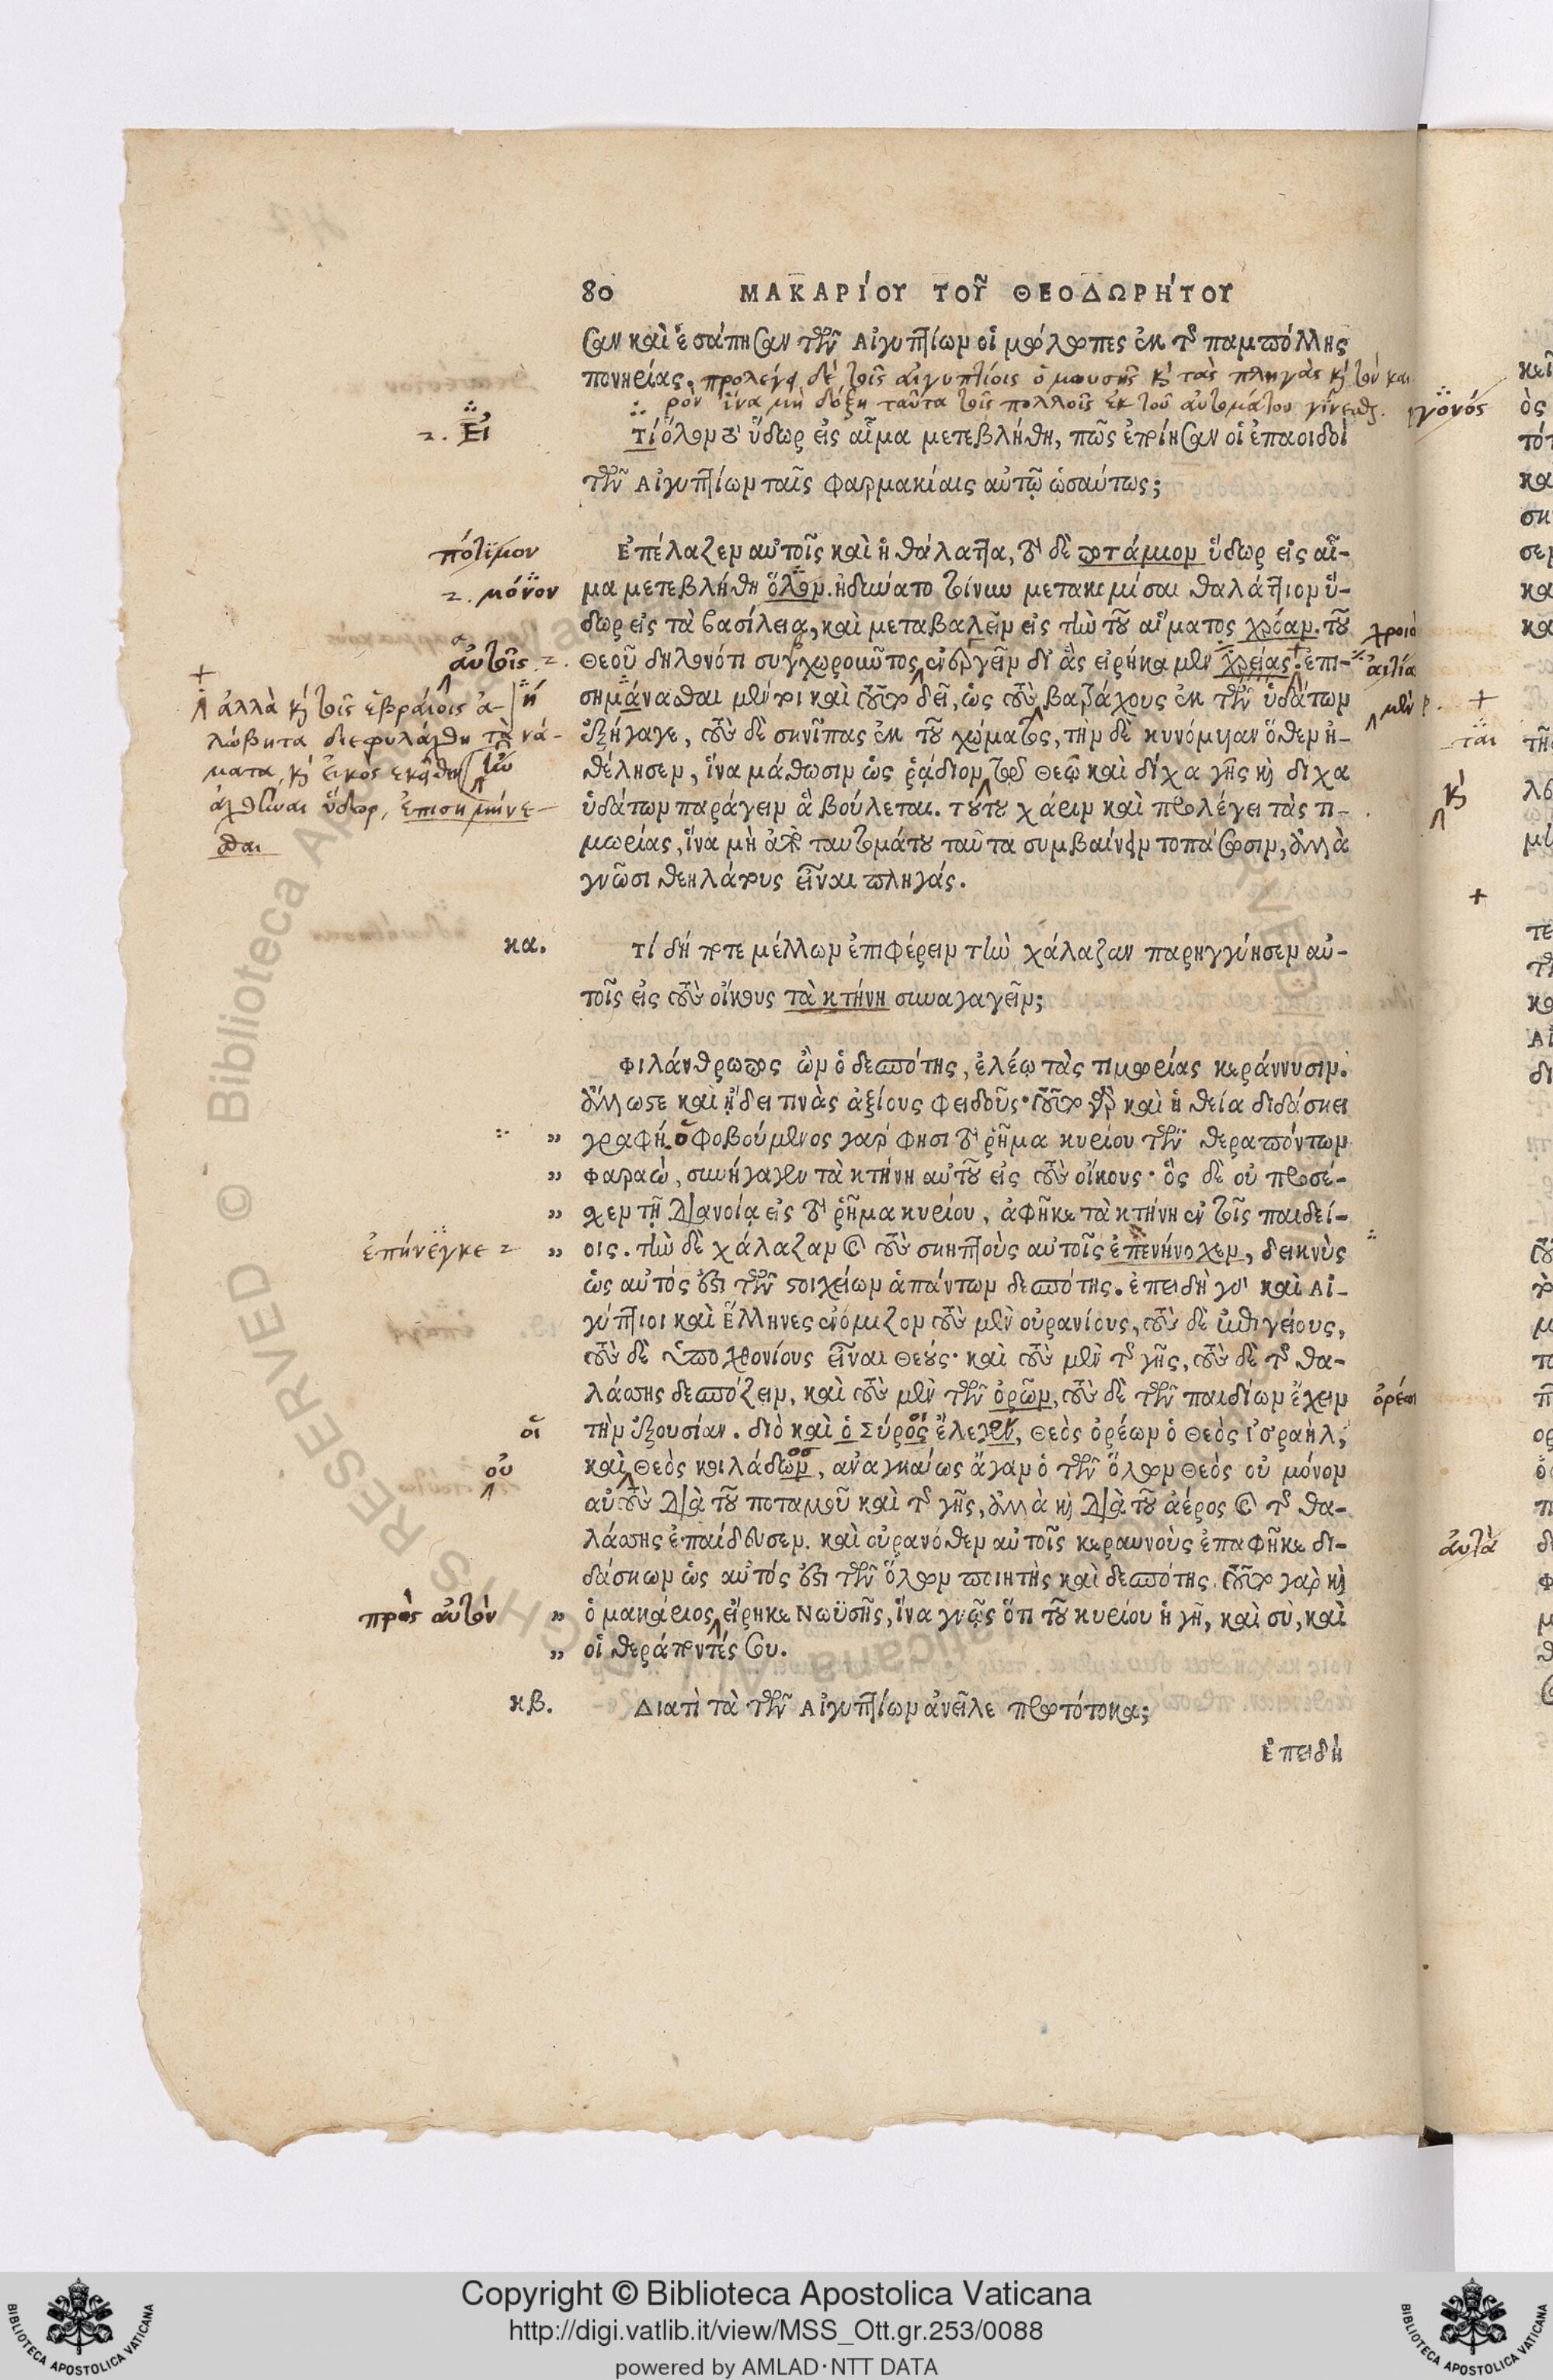 80 ΜΑΚΑΡΊΟΥ ΤΟΥ͂ ΘΕΟΔΩΡΉΤΟΥ
σαν καὶ ἐσάπησαν τῶν Αἰγυπτίων οἱ μώλωπες ἐκ τῆς παμπόλλης
πονηρίας. προλέγει δὲ τοῖς αἰγυπτίοις ὁ μωυσῆς καὶ τὰς πληγὰς καὶ τὸν και
ρὸν ἵνα μὴ δόξη ταῦτα τοῖς πολλοῖς ἐκ τοῦ αὐτομάτου γίνεσθαι. γονός
2. Εἰ
Τί ὅλον τὸ ὕδωρ εἰς αἷμα μετεβλήθη, πῶς ἐποίησαν οἱ ἐπαοιδοὶ
τῶν Αἰγυπτίων ταῖς φαρμακίαις αὐτῷ ὡσαύτως;
πότιμον
Ἐπέλαζεν αὐτοῖς καὶ ἡ θάλαττα, τὸ δὲ ποτάμιον ὕδωρ εἰς αἷ-
2. μόνον
μα μετεβλήθη ὅλον. ἠδύνατο τοίνυν μετακομίσαι θαλάττιον ὕ-
δωρ εἰς τὰ βασίλεια, καὶ μεταβαλεῖν εἰς τὴν τοῦ αἵματος χρόαν. τοῦ
χροιὰ
αὐτοῖς 2.
θεοῦ δηλονότι συγχωροῦντος ἐνεργεῖν δι' ἃς εἰρήκα μὲν χρείας. ἐπι-
αἰτία
+ ἀλλὰ καὶ τοῖς ἑβραίοις ἀ- ή
σημάνασθαι μέντοι καὶ τοῦτο δεῖ, ὡς τοὺς βατράχους ἐκ τῶν ὑδάτων
μὲν
λώβητα διεφυλάχθη τὰ νά-
ἐξήγαγε, τοὺς δὲ σκνῖπας ἐκ τοῦ χώματος, τὴν δὲ κυνόμυιαν ὅθεν ἠ-
ται
ματα, καὶ εἰκὸς ἐκεῖθεν
θέλησεν, ἵνα μάθωσιν ὡς ῥᾴδιον τῷ θεῷ καὶ δίχα γῆς καὶ δίχα
καὶ
ὕδωρ, ἐπισημήνε-
ὑδάτων παράγειν ἃ βούλεται. τούτου χάριν καὶ προλέγει τὰς τι-
σθαι
μωρίας, ἵνα μὴ ἀπὸ ταυτομάτου ταῦτα συμβαίνειν τοπάσωσιν, ἀλλὰ
γνῶσι θεηλάτους εἶναι πληγάς.
κα. Τί δή ποτε μέλλων ἐπιφέρειν τὴν χάλαζαν παρηγγύησεν αὐ-
τοῖς εἰς τοὺς οἴκους τὰ κτήνη συναγαγεῖν;
Φιλάνθρωπος ὢν ὁ δεσπότης, ἐλέῳ τὰς τιμωρίας κεράννυσιν.
ἄλλωστε καὶ ᾔδει τινὰς ἀξίους φειδοῦς· τοῦτο γὰρ καὶ ἡ θεία διδάσκει
„ γραφή. ὁ φοβούμενος γάρ φησι τὸ ῥῆμα κυρίου τῶν θεραπόντων
„ Φαραὼ, συνήγαγεν τὰ κτήνη αὐτοῦ εἰς τοὺς οἴκους· ὃς δὲ οὐ προσέ-
„ σχεν τῇ διανοίᾳ εἰς τὸ ῥῆμα κυρίου, ἀφῆκε τὰ κτήνη ἐν τοῖς παιδεί-
ἐπήνεγκε 2 „ οις. τὴν δὲ χάλαζαν καὶ τοὺς σκηπτοὺς αὐτοῖς ἐπενήνοχεν, δεικνὺς
ὡς αὐτός ἐστι τῶν στοιχείων ἁπάντων δεσπότης. ἐπειδὴ γὰρ καὶ Αἰ-
γύπτιοι καὶ Ἕλληνες ἐνόμιζον τοὺς μὲν οὐρανίους, τοὺς δὲ ἐπιγείους,
τοὺς δὲ ὑποχθονίους εἶναι θεούς· καὶ τοὺς μὲν τῆς γῆς, τοὺς δὲ τῆς θα-
λάσσης δεσπόζειν, καὶ τοὺς μὲν τῶν ὀρῶν, τοὺς δὲ τῶν παιδίων ἔχειν
ὀρέων
οἱ
τὴν ἐξουσίαν. διὸ καὶ ὁ Σύρος ἔλεγεν, θεὸς ὀρέων ὁ θεὸς Ἰσραὴλ,
οὐ
καὶ θεὸς κοιλάδων, ἀναγκαίως ἄγαν ὁ τῶν ὅλων θεὸς οὐ μόνον
αὐτοὺς διὰ τοῦ ποταμοῦ καὶ τῆς γῆς, ἀλλὰ καὶ διὰ τοῦ ἀέρος καὶ τῆς θα-
λάσσης ἐπαίδευσεν. καὶ οὐρανόθεν αὐτοῖς κεραυνοὺς ἐπαφῆκε δι-
αὐτὰ
δάσκων ὡς αὐτός ἐστι τῶν ὅλων ποιητὴς καὶ δεσπότης. τοῦτο γὰρ καὶ
πρὸς αὐτὸν „ ὁ μακάριος εἴρηκε Μωϋσῆς, ἵνα γνῷς ὅτι τοῦ κυρίου ἡ γῆ, καὶ σὺ, καὶ
„ οἱ θεράποντές σου.
κβ. Διατὶ τὰ τῶν Αἰγυπτίων ἀνεῖλε πρωτότοκα;
Ἐπειδὴ
© Biblioteca Apostolica Vaticana
Copyright © Biblioteca Apostolica Vaticana
http://digi.vatlib.it/view/MSS_Ott.gr.253/0088
powered by AMLAD·NTT DATA
BIBLIOTECA APOSTOLICA VATICANA
BIBLIOTECA APOSTOLICA VATICANA